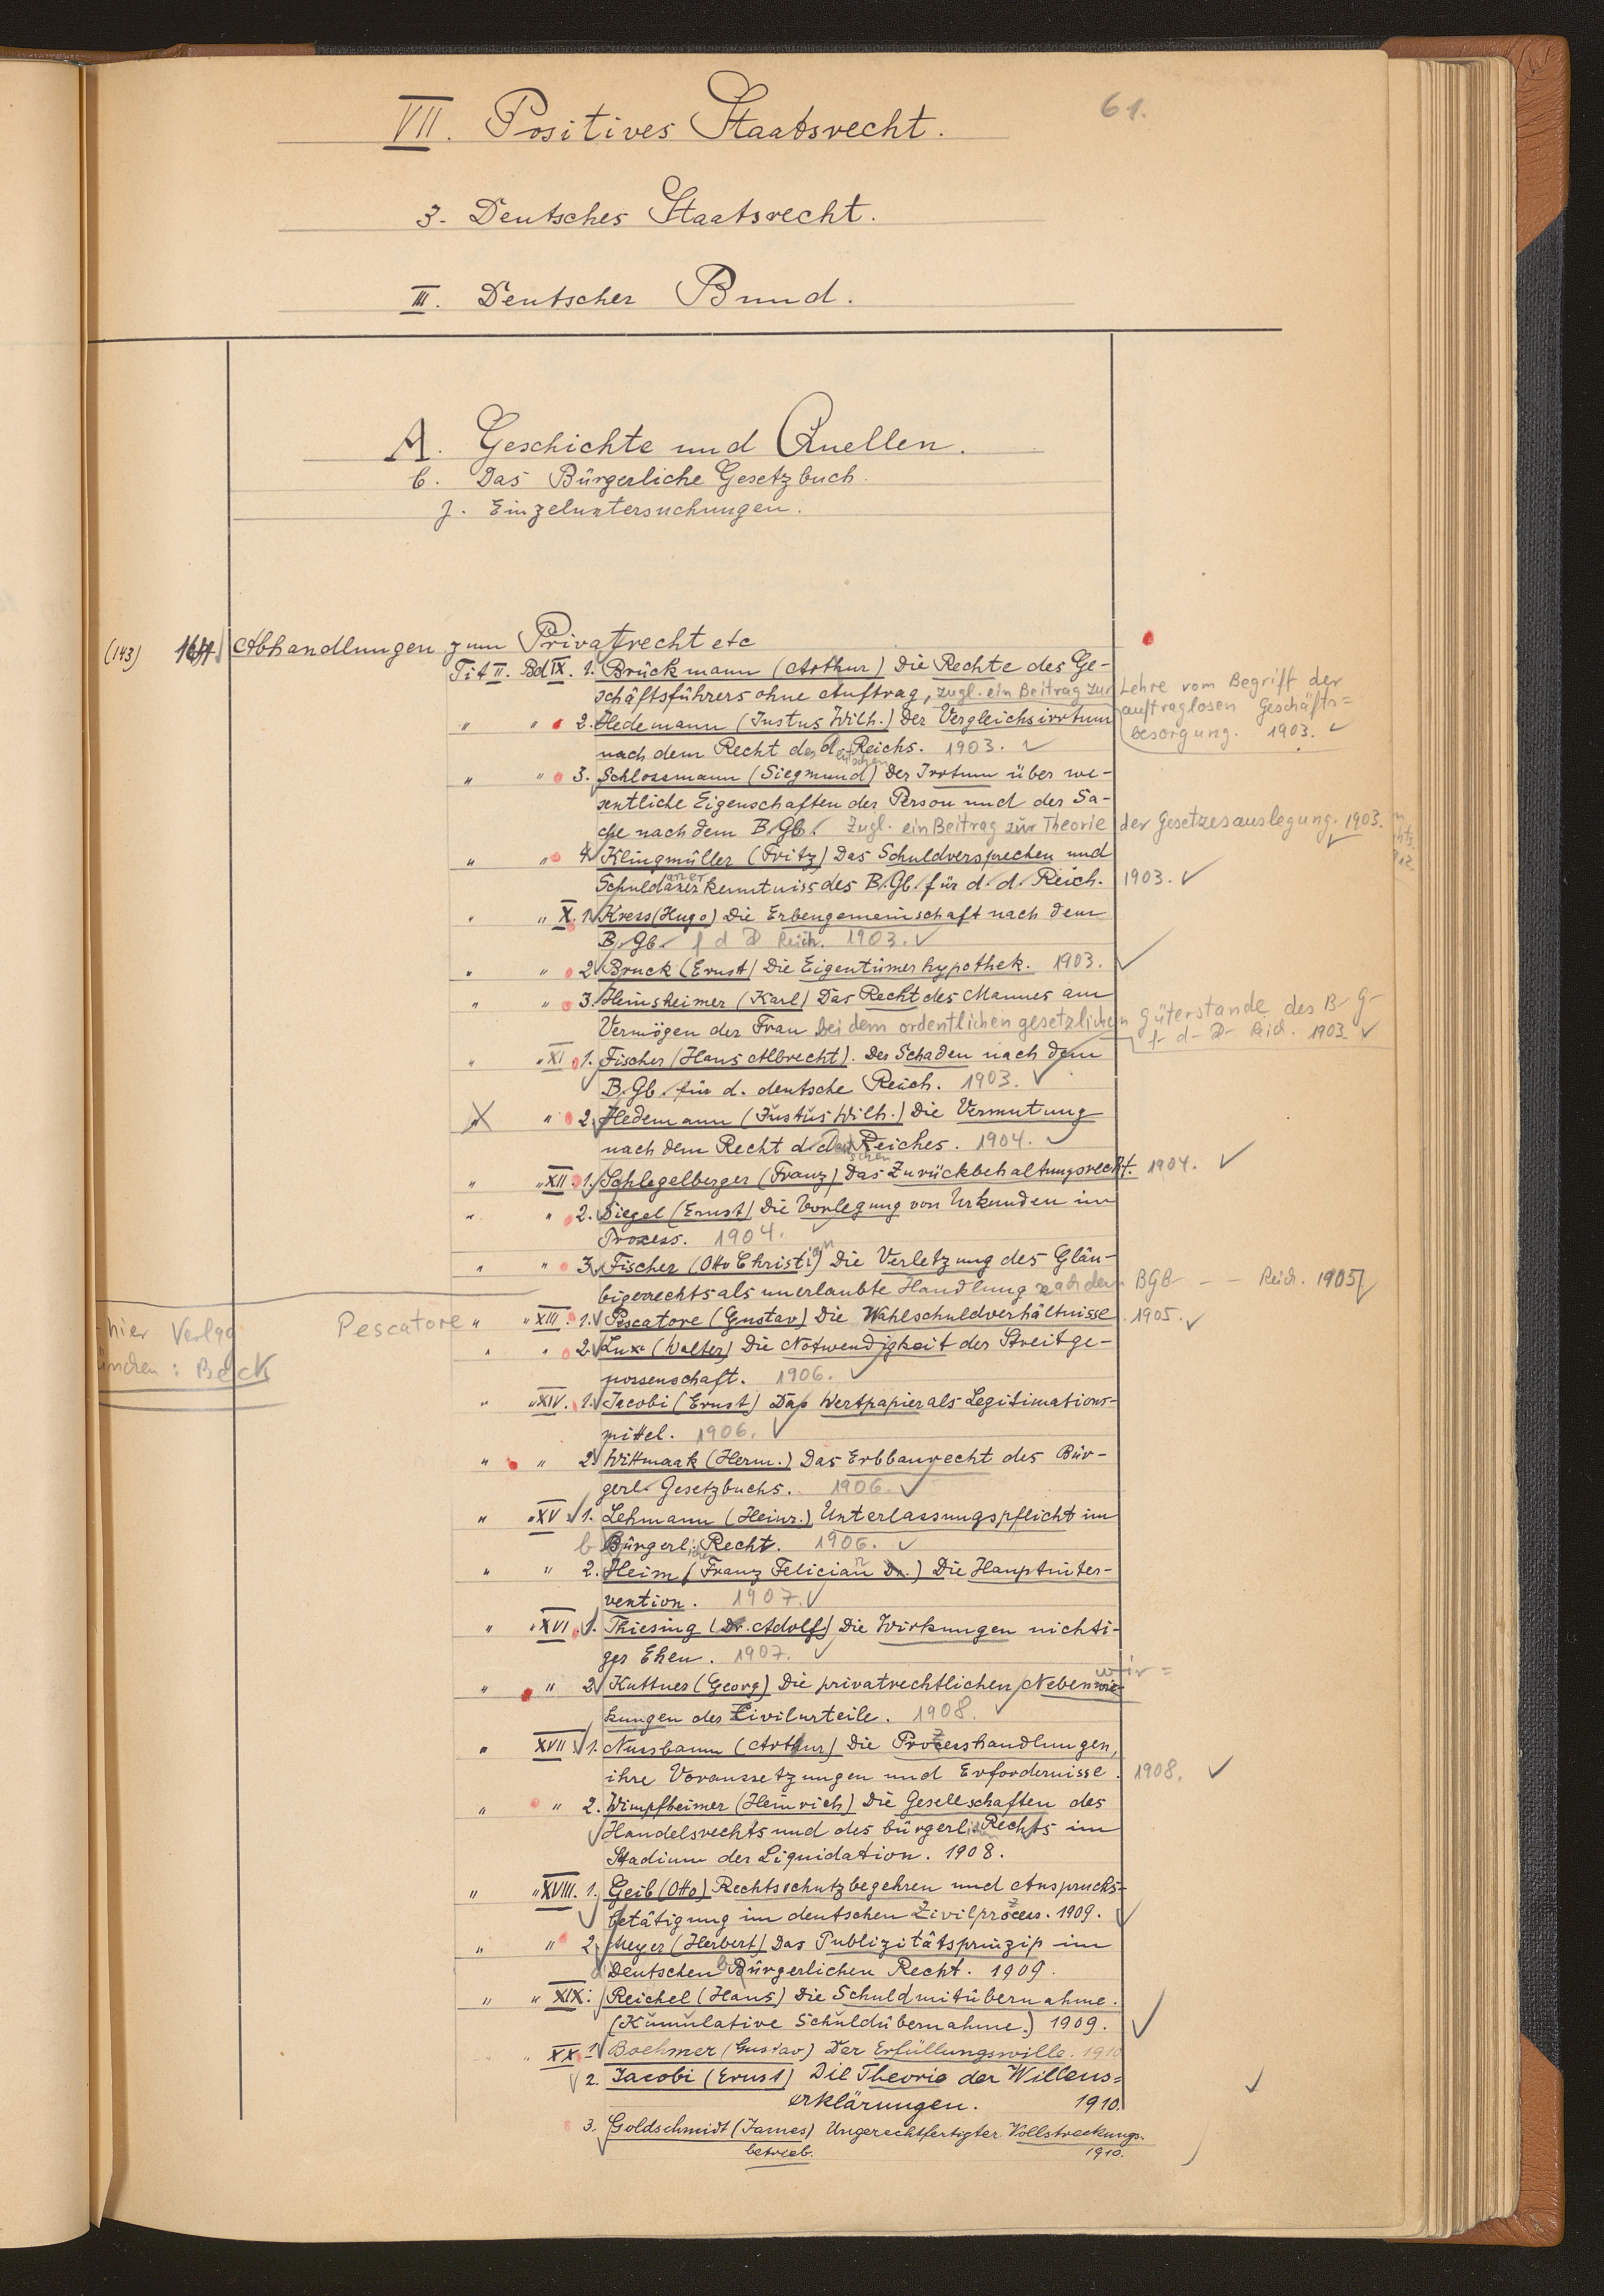 61.
VII. Positives Staatsrecht.
3. Deutsches Staatsrecht.
III. Deutscher Bund.
A. Geschichte und Quellen.
b. Das Bürgerliche Gesetzbuch.
J. Einzeluntersuchungen.
(143) Abhandlungen zum Privatrecht etc
Tit II. Bd IX. 1. Brückmann (Arthur) Die Rechte des Ge-
schäftsführers ohne Auftrag, zugl. ein Beitrag zur Lehre vom Begriff der
auftraglosen Geschäfts=
besorgung. 1903.
" " 2. Hedemann (Justus Wilh.) Der Vergleichsirrtum
nach dem Recht des deutschen Reichs. 1903.
" " 3. Schlossmann (Siegmund) Der Irrtum über we-
sentliche Eigenschaften der Person und der Sa-
che nach dem B.Gb. Zugl. ein Beitrag zur Theorie der Gesetzesauslegung. 1903.
" " 4. Klingmüller (Fritz) Das Schuldversprechen und
Schuldanerkenntniss des B.Gb. für d. d. Reich. 1903.
" " X. 1. Kress (Hugo) Die Erbengemeinschaft nach dem
B.Gb. f d D Reich. 1903.
" " 2. Bruck (Ernst) Die Eigentümerhypothek. 1903.
" " 3. Heinsheimer (Karl) Das Recht des Mannes am
Vermögen der Frau bei dem ordentlichen gesetzlichen güterstande des B- G-
f- d- D- Reich. 1903.
" " XI 1. Fischer (Hans Albrecht). Der Schaden nach dem
B.Gb. für d. deutsche Reich. 1903.
" " 2. Hedemann (Justus Wilh.) Die Vermutung
nach dem Recht d. deutschen Reiches. 1904.
" " XII 1. Schlegelberger (Franz) Das Zurückbehaltungsrecht. 1904.
" " 2. Siegel (Ernst) Die Vorlegung von Urkunden im
Prozess. 1904.
" " 3. Fischer (Otto Christian) Die Verletzung des Gläu-
bigerrechts als unerlaubte Handlung nach dem BGB - - Reich. 1905
hier Verlag Pescatore " " XIII. 1. Pescatore (Gustav) Die Wahlschuldverhältnisse. 1905.
" " 2. Lux (Walter) Die Notwendigkeit der Streitge-
: Beck
nossenschaft. 1906.
" " XIV. 1. Jacobi (Ernst) Das Wertpapier als Legitimations-
mittel. 1906.
" " 2. Wittmaak (Herm.) Das Erbbaurecht des Bür-
gerl. Gesetzbuchs. 1906.
" " XV 1. Lehmann (Heinr.) Unterlassungspflicht im
Bürgerlichen Recht. 1906.
" " 2. Heim (Franz Felician Dr.) Die Hauptinter-
vention. 1907.
" " XVI 1. Thiesing (Dr. Adolf) Die Wirkungen nichti-
ger Ehen. 1907.
" " 2. Kuttner (Georg) Die privatrechtlichen Nebenwir=
kungen der Zivilurteile. 1908.
" XVII 1. Nussbaum (Arthur) Die Prozesshandlungen,
ihre Voraussetzungen und Erfordernisse. 1908.
" " 2. Wimpfheimer (Heinrich) Die Gesellschaften des
Handelsrechts und des bürgerlich Rechts im
Stadium der Liquidation. 1908.
" " XVIII. 1. Geib (Otto) Rechtsschutzbegehren und Anspruchs-
betätigung im deutschen Zivilprozess. 1909.
" " 2. Meyer (Herbert) Das Publizitätsprinzip im
Deutschen Bürgerlichen Recht. 1909.
" " XIX: Reichel (Hans) Die Schuldmitübernahme.
(Kumulative Schuldübernahme.) 1909.
" XX 1. Boehmer (Gustav) Der Erfüllungswille. 1910
2. Jacobi (Ernst) Die Theorie der Willens=
erklärungen. 1910.
3. Goldschmidt (James) Ungerechtfertigter Vollstreckungs-
betrieb. 1910.